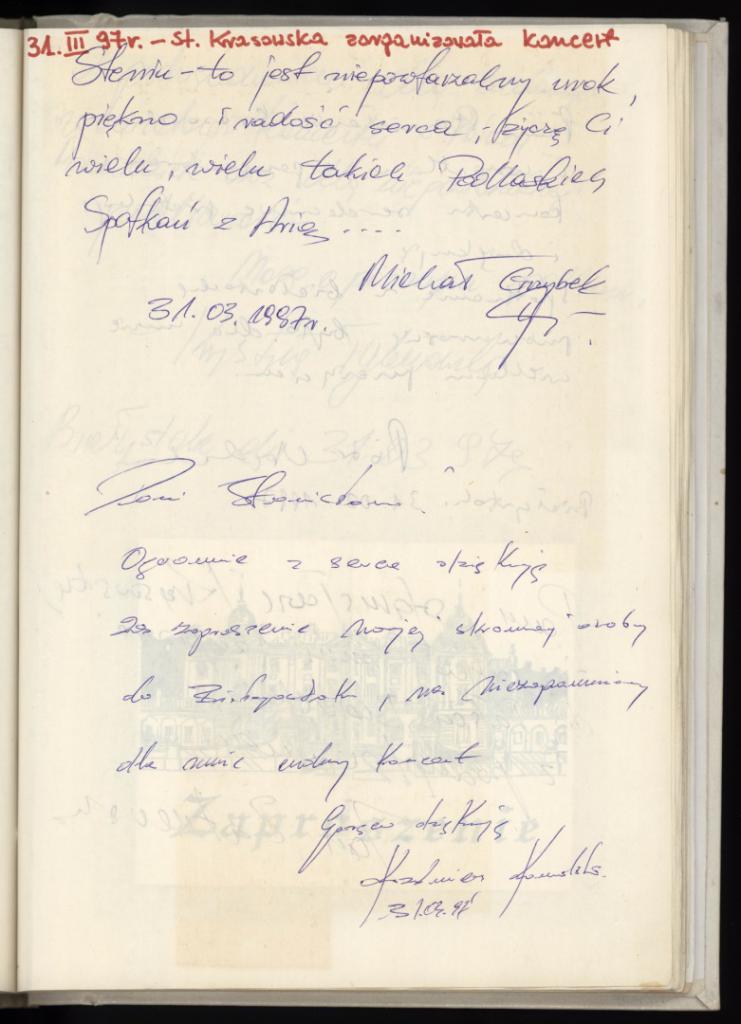 31. III 97r. – St. Krasowska zorganizowała koncert
Steniu – to jest niepowtarzalny urok,
piękno i radość serca, życzę Ci
wielu, wielu takich Podlaskich
Spotkań z Arią ....
Michał Grzybek
31.03.1997r.
Pani Stanisławo!
Ogromnie z serca dziękuję
za zaproszenie mojej skromnej osoby
do Białegostoku, na niezapomniany
dla mnie cudny koncert
Gorąco dziękuję
Kazimierz Kowalski
31.03.97
Zaproszenie